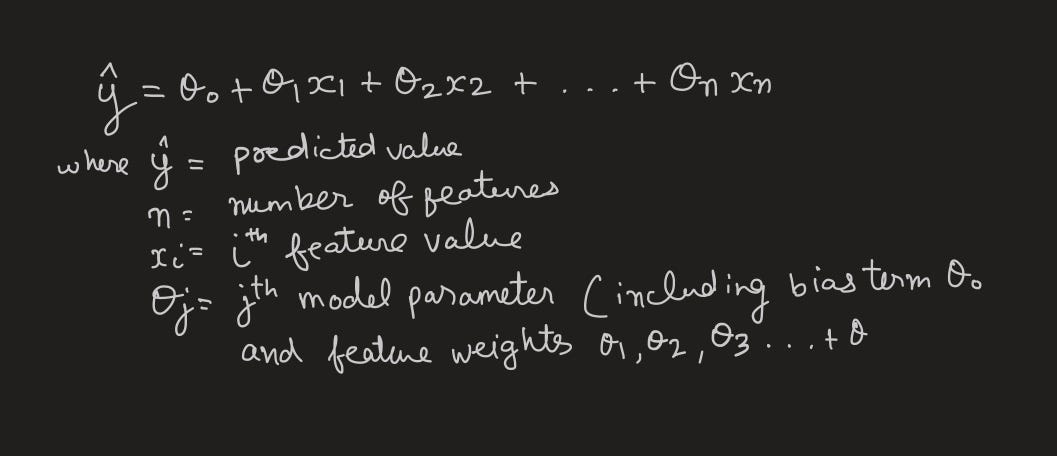 ŷ = θ₀ + θ₁x₁ + θ₂x₂ + ... + θₙxₙ
where ŷ = predicted value
n = number of features
xᵢ = iᵗʰ feature value
θⱼ = jᵗʰ model parameter (including bias term θ₀
and feature weights θ₁, θ₂, θ₃ ... + θ